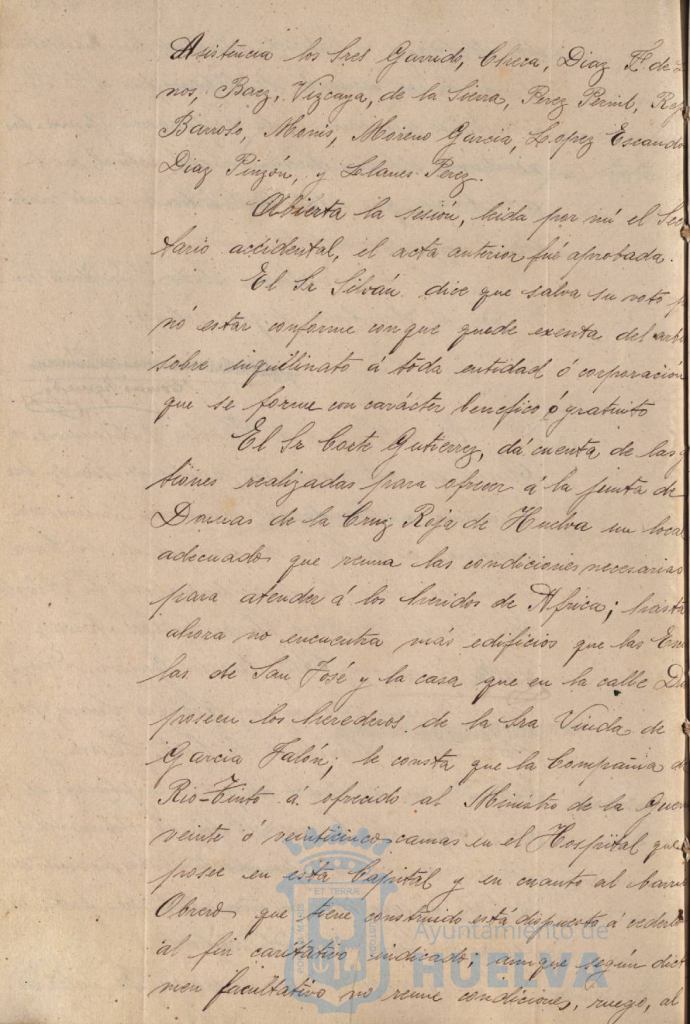 Asistencia los Sres Garrido, Checa, Diaz F. de
nos, Baez, Vizcaya, de la Sierra, Perez Perint,
Barroso, Monis, Moreno Garcia, Lopez Escando
Diaz Pinzón, y Llanes Perez.
Abierta la sesión, leida por mi el Secre
tario accidental, el acta anterior fué aprobada.
El Sr Silván dice que salva su voto p
nó estar conforme con que quede exenta del arbi
sobre inquilinato á toda entidad ó corporación
que se forme con carácter benefico ó gratuito
El Sr Corte Gutierrez, dá cuenta de las g
tiones realizadas para ofrecer á la junta de
Damas de la Cruz Roja de Huelva un local
adecuado que reuna las condiciones necesarias
para atender á los heridos de Africa; hasta
ahora no encuentra más edificios que las Escu
las de San José y la casa que en la calle
poseen los herederos de la Sra Viuda de
Garcia Jalón; le consta que la Compañia de
Rio-Tinto á ofrecido al Ministro de la Guer
veinte ó veinticinco camas en el Hospital que
posee en está Capital y en cuanto al barrio
Obrero que tiene construido está dispuesto á cederlo
al fin caritativo indicado; aunque según dict
men facultativo no reune condiciones, ruego, al
ET TERRAE
Ayuntamiento de
HUELVA